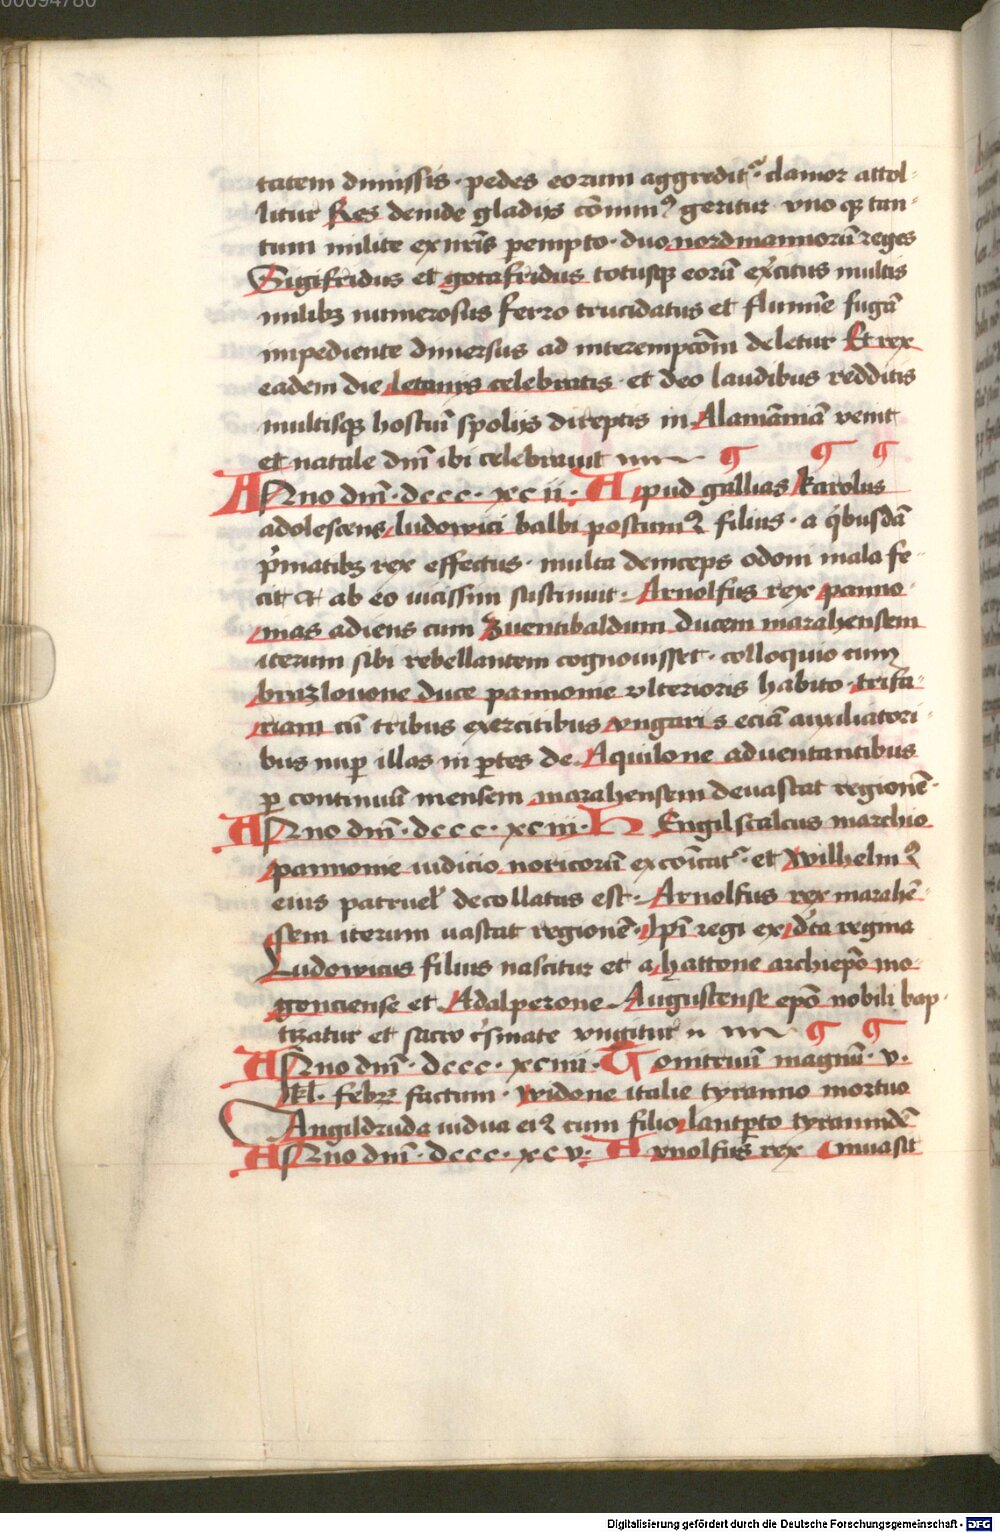 00094780
tatem dimissis · pedes eorum aggreditᷣ · clamor attol-
litur Res deinde gladijs cōminꝰ geritur vno qꝫ tan-
tum milite ex nr̄is ꝑempto · duo nordmannorū reges
Sigifridus et gotafridus totusqꝫ eorū exc̄itus multis
milibꝫ numerosus ferro trucidatus et flumīe fugā
impediente diuersus ad interempcōm̄ deletur Et rex
eadem die letanijs celebratis · et deo laudibus redditis
multisqꝫ hostiū spolijs direptis in Alamāniā venit
et natale dn̄i ibi celebrauit
ANno dn̄i · dccc · xcii · Apud gallias karolus
adolescens ludowici balbi postumꝰ filius · a qͥbusdā
pͥmatibꝫ rex effectus · multa deinceps odom mala fe-
cit ⁊ ab eo uicissim sustinuit · Arnolfus rex panno-
nias adiens cum Zuentibaldum ducem marahensem
iterum sibi rebellantem cognouisset · colloquio cum
brazlouone duce pannonie vlterioris habito · trifa-
riam cū tribus exercitibus vngaris eciā auxiliatori-
bus nuꝑ illas in ꝑtes de Aquilone aduentantibus
ꝑ continuū mensem marahensem deuastat regionē ·
ANno dn̄i · dccc · xciii · HEngilscalcus marchio
pannonie iudicio noricorū excōicatᷣ · et Wilhelmꝰ
eius patruel̄ decollatus est · Arnolfus rex marahē-
sem iterum uastat regionē · Ip̄i regi ex dc̄a regina
Ludowicus filius nascitur et a hattone archiep̄o mo-
gonciense et Adalperone Augustense ep̄o nobili bap-
tizatur et sacro cͥsmate vngitur
ANno dn̄i · dccc · xciiii · Tonitruū magnū · v ·
kl · febrꝫ factum · Widone italie tyranno mortuo
Angildruda uidua eiꝰ cum filio lantꝑto tyrannidē
ANno dn̄i · dccc · xcv · Arnolfus rex inuasit
Digitalisierung gefördert durch die Deutsche Forschungsgemeinschaft - DFG